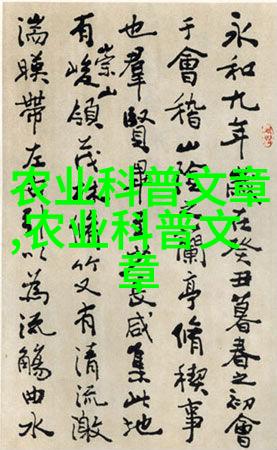 农业科普文章
,农业科普文
章
永和九年在癸丑暮春之初會
于會稽山陰蘭亭脩稧事
也羣賢畢長咸集此地
有崇山峻領茂林竹又有清流激
湍暎帶左以為流觴曲水